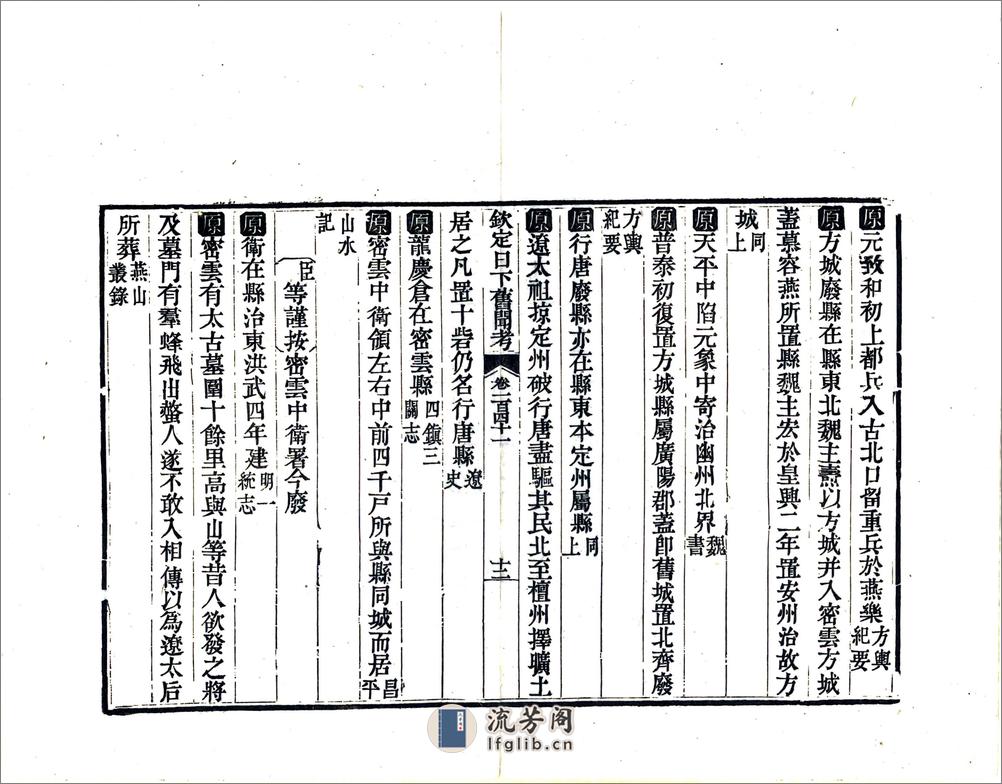 原元致和初上都兵入古北口留重兵於燕樂方輿紀要
原方城廢縣在縣東北魏主燾以方城并入密雲方城
蓋慕容燕所置縣魏主宏於皇興二年置安州治故方
城同上
原天平中陷元象中寄治幽州北界魏書
原普泰初復置方城縣屬廣陽郡蓋卽舊城置北齊廢
方輿紀要
原行唐廢縣亦在縣東本定州屬縣同上
原遼太祖掠定州破行唐盡驅其民北至檀州擇曠土
欽定日下舊聞考 卷一百四十一 十二
居之凡置十砦仍名行唐縣遼史
原龍慶倉在密雲縣四鎮三關志
原密雲中衛領左右中前四千戸所與縣同城而居昌平
山水記
臣等謹按密雲中衛署今廢
原衛在縣治東洪武四年建明一統志
原密雲有太古墓圍十餘里高與山等昔人欲發之將
及墓門有羣蜂飛出螫人遂不敢入相傳以爲遼太后
所葬燕山叢錄
流芳阁
lfglib.cn